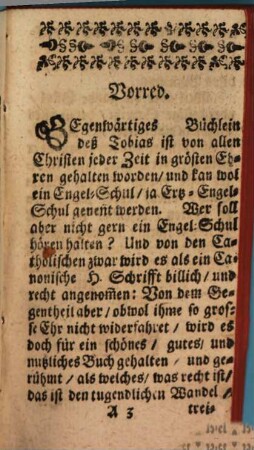 Vorred.
GEgenwärtiges Büchlein
deß Tobias ist von allen
Christen jeder Zeit in grösten Eh-
ren gehalten worden/ und kan wol
ein Engel-Schul/ ja Ertz-Engel-
Schul genent werden. Wer soll
aber nicht gern ein Engel-Schul
hören halten? Und von den Ca-
tholischen zwar wird es als ein Ca-
nonische H. Schrifft billich/ und
recht angenom̃en: Von dem Ge-
gentheil aber/ obwol ihme so gros-
se Ehr nicht widerfahret/ wird es
doch für ein schönes/ gutes/ und
nutzliches Buch gehalten/ und ge-
rühmt/ als welches/ was recht ist/
das ist den tugendlichen Wandel/
A 3 trei-